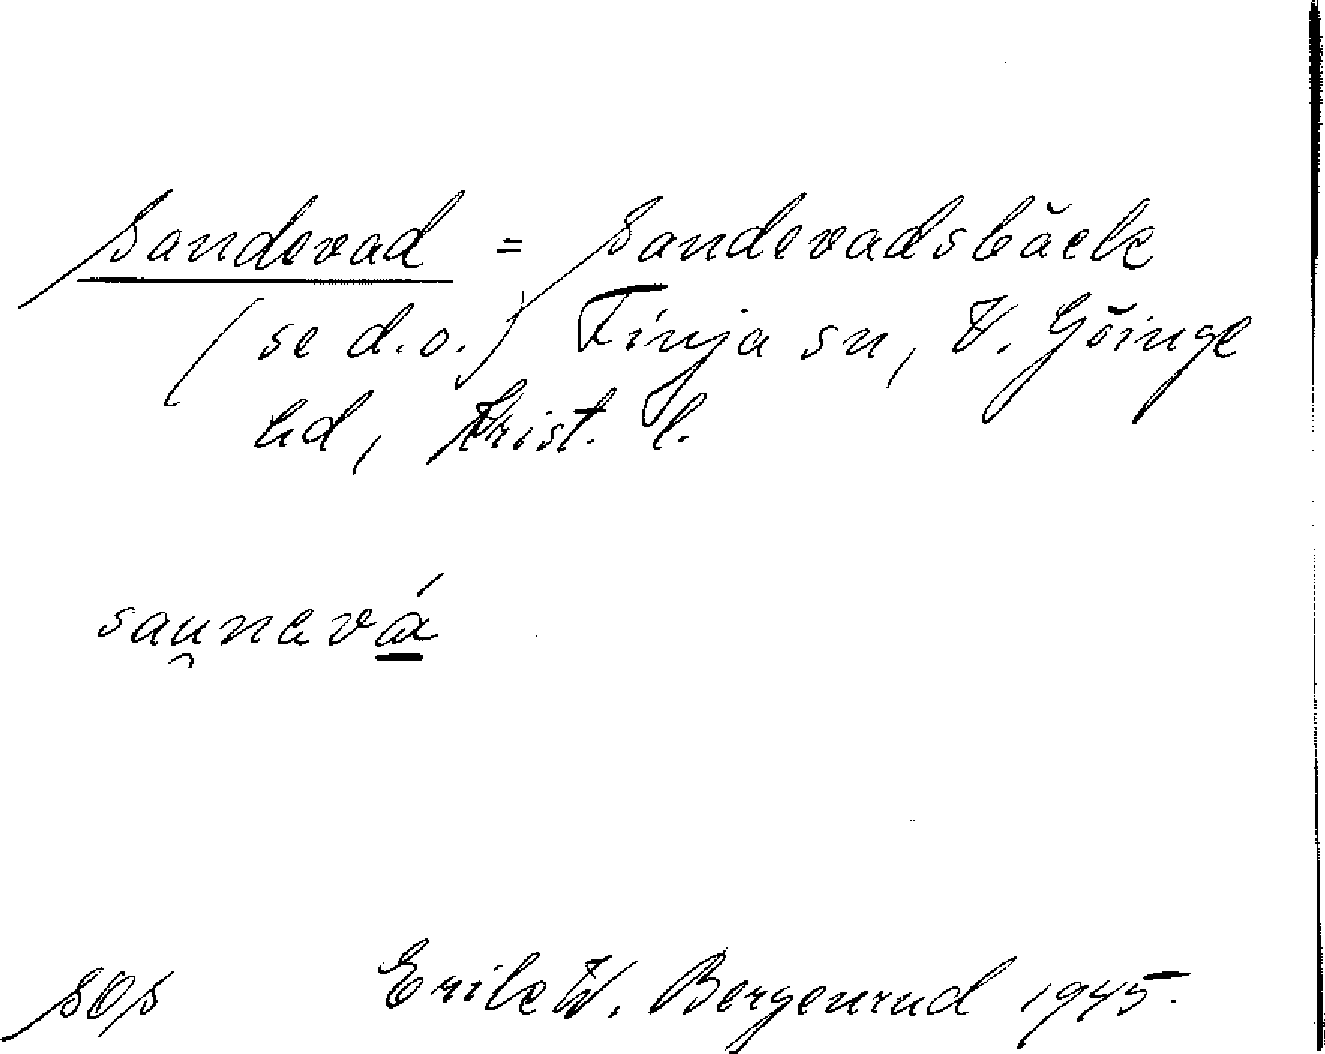 Sandevad = Sandevadsbäck
(se d.o.) Finja sn, V. Göinge
hd, Krist. l.
sau̯nevá̱
SOS Erik W. Bergenrud 1945.